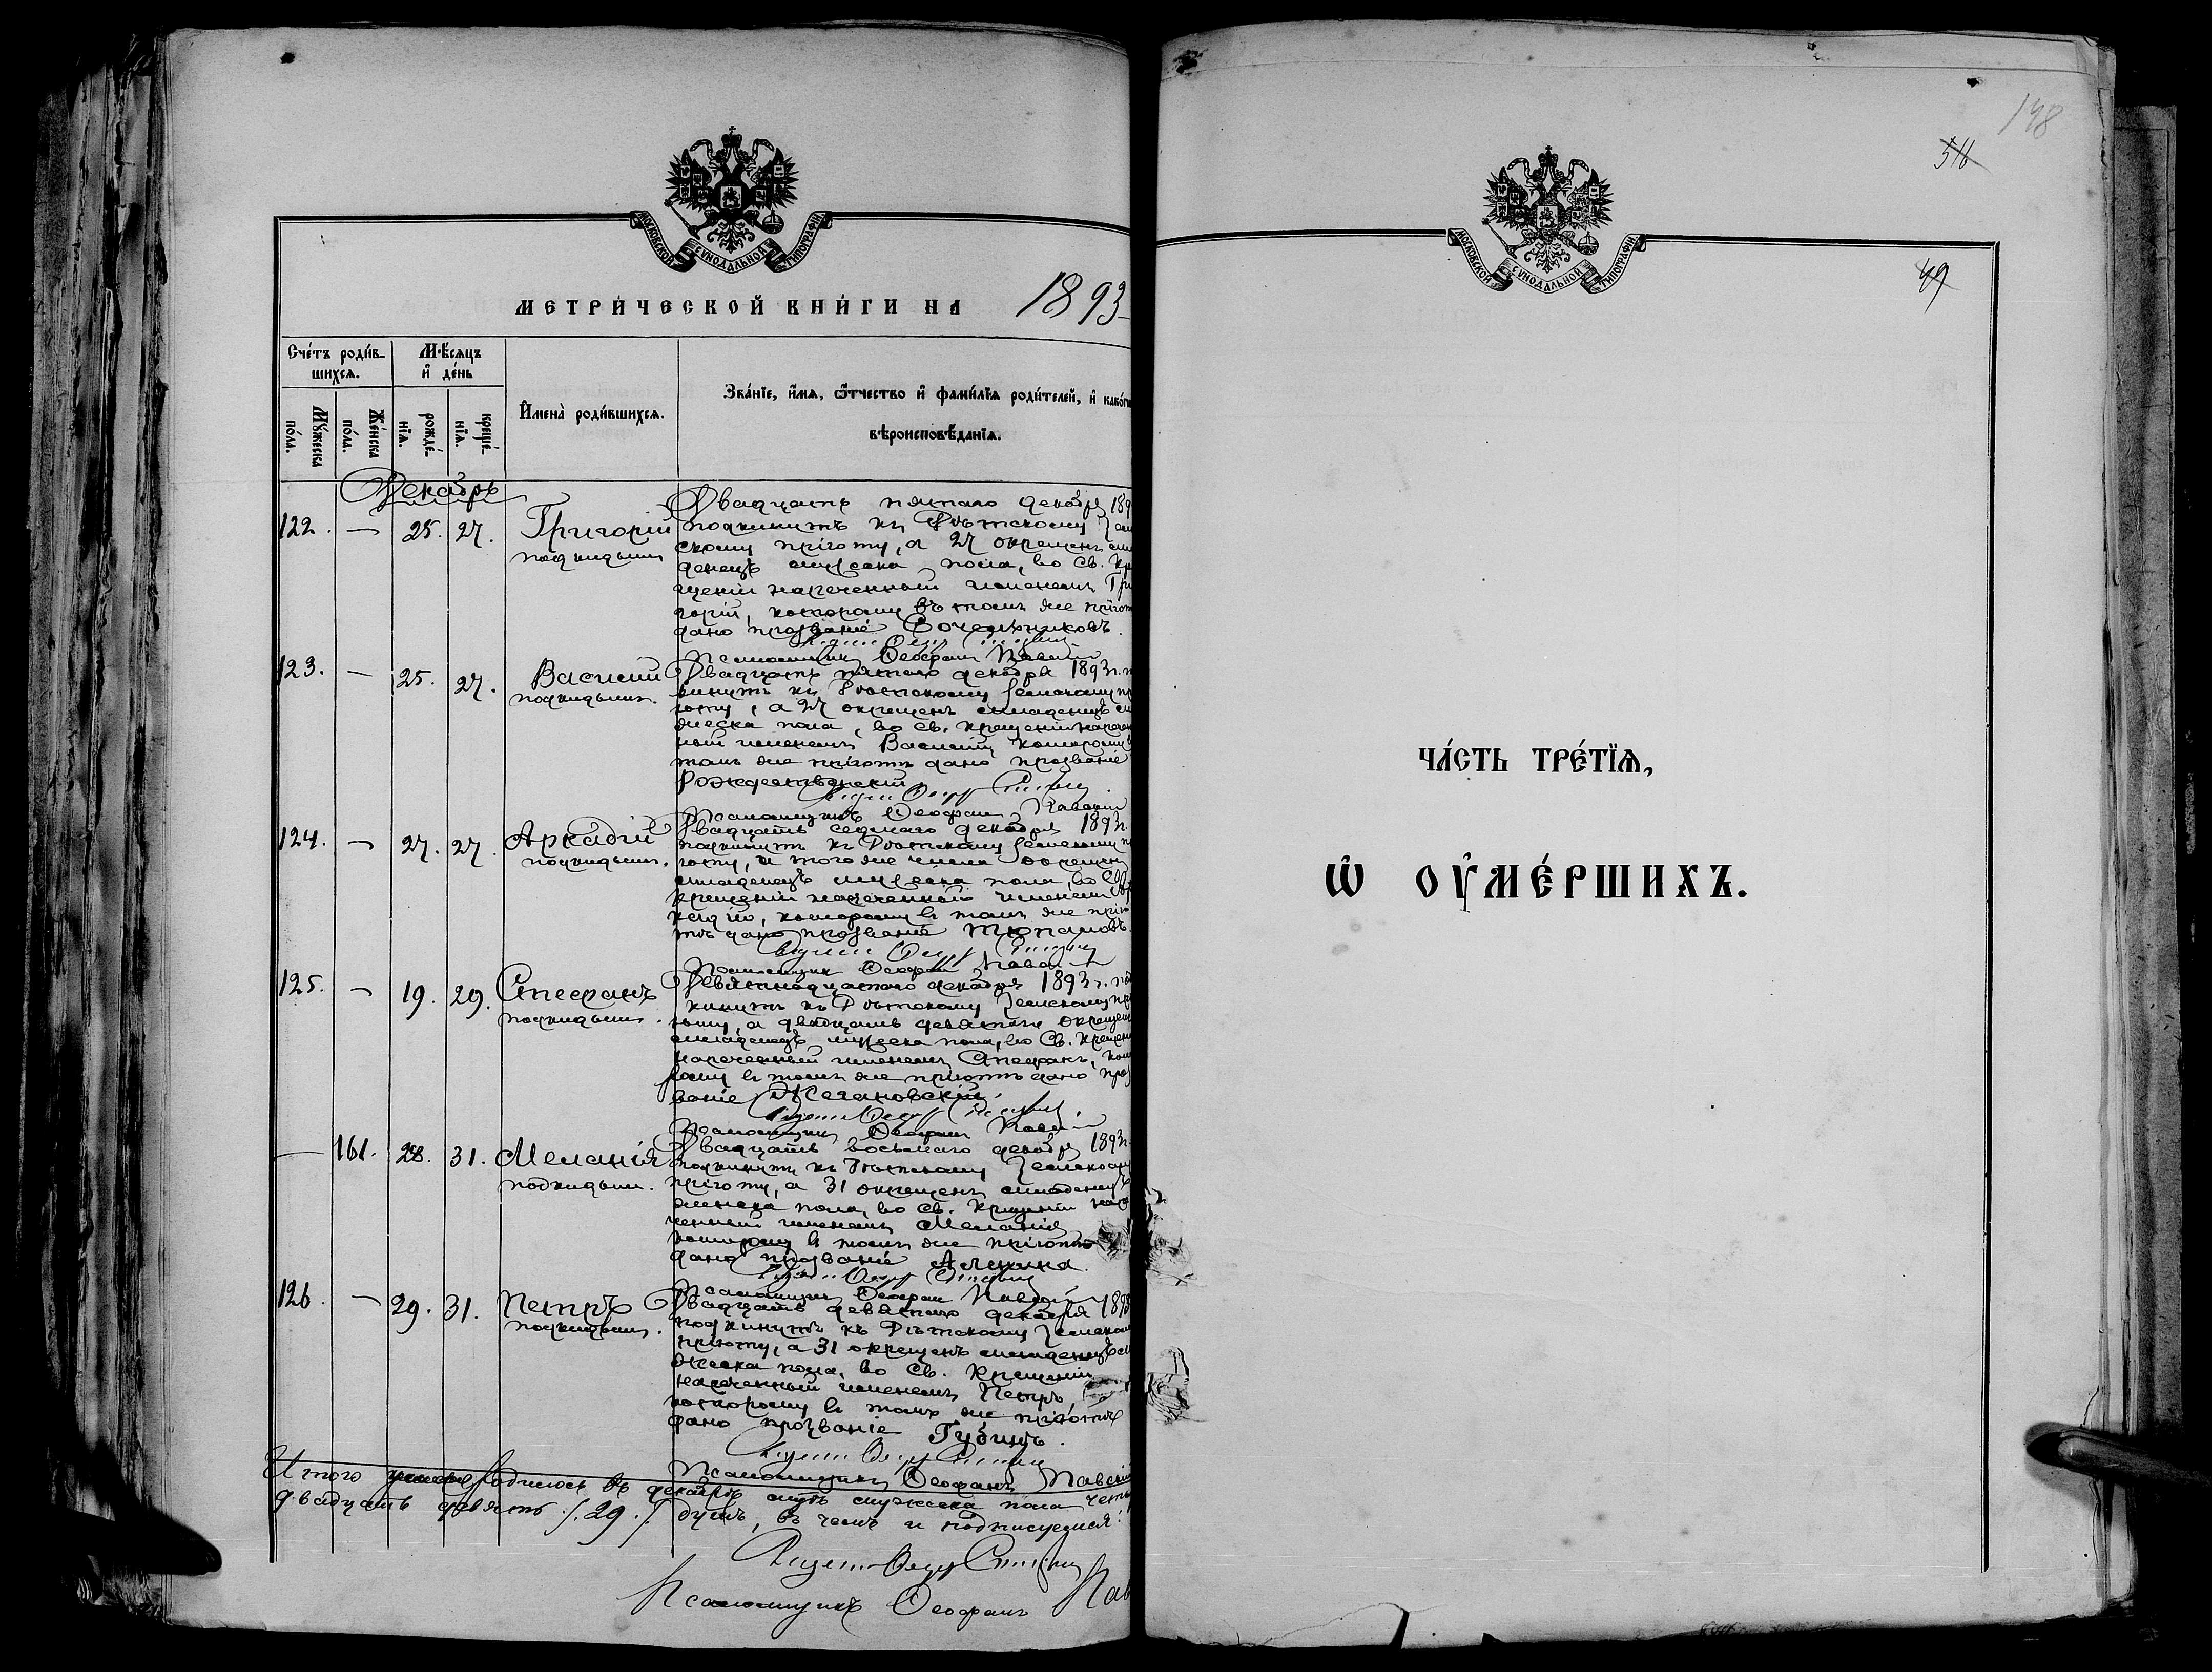 МОСКОВСКОЙ СѴНОДАЛЬНОЙ ТИПОГРАФІИ
МЕТРИ́ЧЕСКОЙ КНИ́ГИ НА 1893
Сче́тъ роди́в-
шихсѧ.
Мѣ́сѧцъ
и҆ де́нь
Мꙋ́жеска
по́ла.
Же́нска
по́ла.
рожде́-
нїѧ.
креще́-
нїѧ.
И҆мена̀ роди́вшихсѧ.
Зва́нїе, и҆́мѧ, ѻ҆́тчество и҆ фами́лїѧ роди́телей, и҆ како́гѡ
вѣроисповѣ́данїѧ.
Декабрь
122. — 25. 27. Григорій
подкидышъ
Двадцать пятаго декабря 189
подкинутъ къ Дѣтскому Зем
скому пріюту, а 27 окрещенъ мла
денецъ мужеска пола, во Св. Кре
щеніи нареченный именемъ Гри
горій, которому въ томъ же пріютѣ
дано прозваніе Сочельниковъ.
Псаломщикъ Ѳеофанъ Павскій
123. — 25. 27. Василій
подкидышъ.
Двадцать пятаго декабря 1893 г. п
кинутъ къ Дѣтскому Земскому прі
юту, а 27 окрещенъ младенецъ му
жеска пола, во Св. Крещеніи нарече
ный именемъ Василій, которому въ
томъ же пріютѣ дано прозваніе
Рождественскій
Псаломщикъ Ѳеофанъ Павскій
124. — 27. 27. Аркадій
подкидышъ.
Двадцать седьмаго декабря 1893 г.
подкинутъ къ Дѣтскому Земскому п
юту, и того же числа окрещенъ
младенецъ мужеска пола, во Св.
Крещеніи нареченный именемъ Ар
кадій, которому въ томъ же прію
тѣ дано прозваніе Тюпановъ.
Псаломщикъ Ѳеофанъ Павскій
125. — 19. 29. Стефанъ
подкидышъ.
Девятнадцатаго декабря 1893 г. под
кинутъ къ Дѣтскому Земскому прі
юту, а двадцать девятаго окрещенъ
младенецъ мужеска пола, во Св. Крещен
нареченный именемъ Стефанъ, кото
рому въ томъ же пріютѣ дано проз
ваніе
Псаломщикъ Ѳеофанъ Павскій
— 161. 28. 31. Меланія
подкидыш.
Двадцать восьмаго декабря 1893 г.
подкинутъ къ Дѣтскому Земскому
пріюту, а 31 окрещенъ младенецъ
женска пола, во Св. Крещеніи наре
ченный именемъ Меланія
которому въ томъ же пріютѣ
дано прозваніе Аленина.
Псаломщикъ Ѳеофанъ Павскій
126. — 29. 31. Петръ
подкидышъ.
Двадцать девятаго декабря 1893
подкинутъ къ Дѣтскому Земском
пріюту, а 31 окрещенъ младенецъ му
жеска пола, во Св. Крещеніи
нареченный именемъ Петръ,
которому въ томъ же пріютѣ
дано прозваніе Губинъ.
Псаломщикъ Ѳеофанъ Павскій
Итого родилось въ декабрѣ мужеска пола
двадцать девять /.29./ душъ, въ чемъ и подписуемся:
Псаломщикъ Ѳеофанъ Пав
148
516
МОСКОВСКОЙ СѴНОДАЛЬНОЙ ТИПОГРАФІИ
49
ЧА́СТЬ ТРЕ́ТЇѦ,
Ѡ҆ ОУ҆МЕ́РШИХЪ.